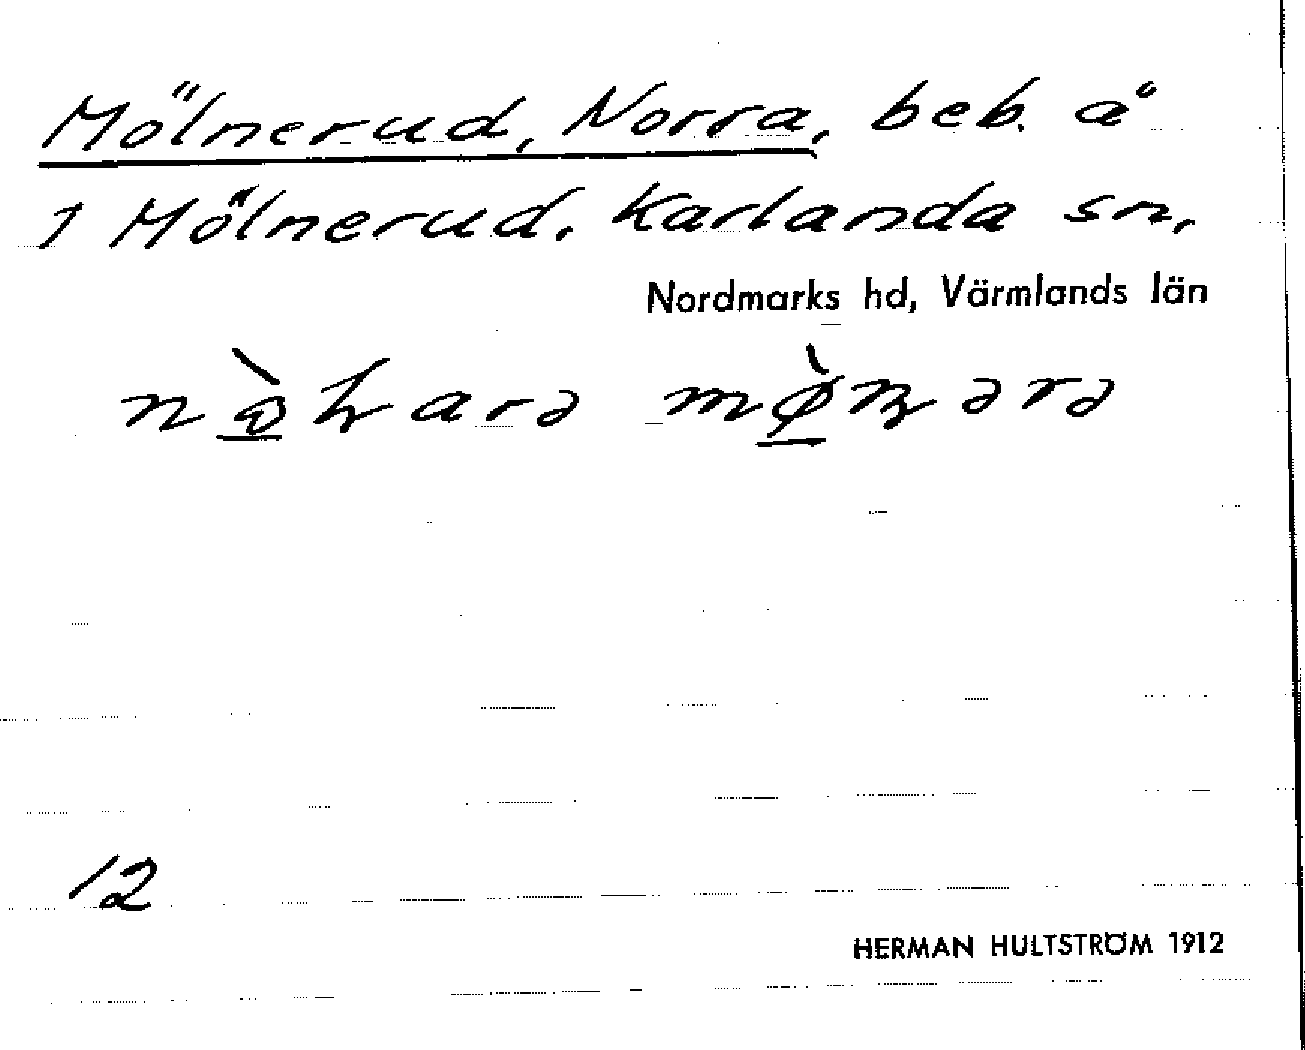 Mölnerud, Norra, beb. å
1 Mölnerud. Karlanda sn,
Nordmarks hd, Värmlands län
12
HERMAN HULTSTRÖM 1912